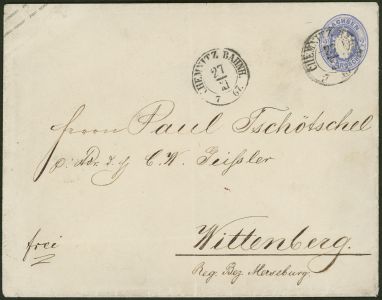 CHEMNITZ BAHNH.
27
XI
7 67.
SACHSEN
CHEMNITZ
7 67.
Herrn Paul Tschötschel
p. Adr. d. H. C. W. Geissler
frei
Wittenberg.
Reg. Bez. Merseburg.